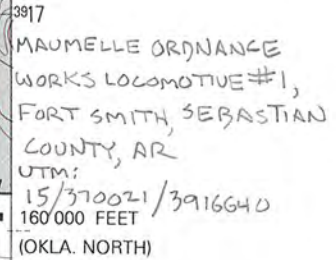 3917
MAUMELLE ORDNANCE
WORKS LOCOMOTIVE #1,
FORT SMITH, SEBASTIAN
COUNTY, AR
UTM:
15/370021/3916640
160 000 FEET
(OKLA. NORTH)